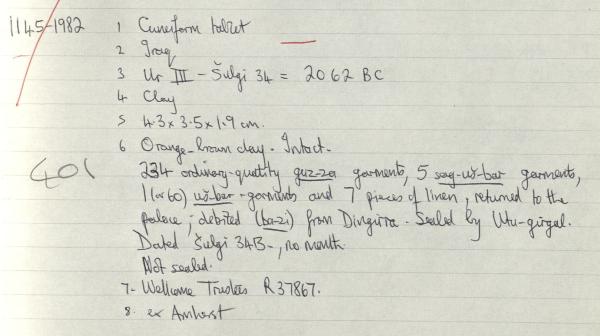 1145-1982 1 Cuneiform tablet
2 Iraq
3 Ur III - Šulgi 34 = 2062 BC
4 Clay
5 4.3 x 3.5 x 1.9 cm.
6 Orange-brown clay. Intact.
401 234 ordinary-quality guz-za garments, 5 sag-uš-bar garments,
1 (or 60) uš-bar-garments and 7 pieces of linen, returned to the
palace; debited (ba-zi) from Dingirra. Sealed by Utu-girgal.
Dated Šulgi 34B-, no month.
Not sealed.
7- Wellcome Trustees R37867.
8. ex Amherst